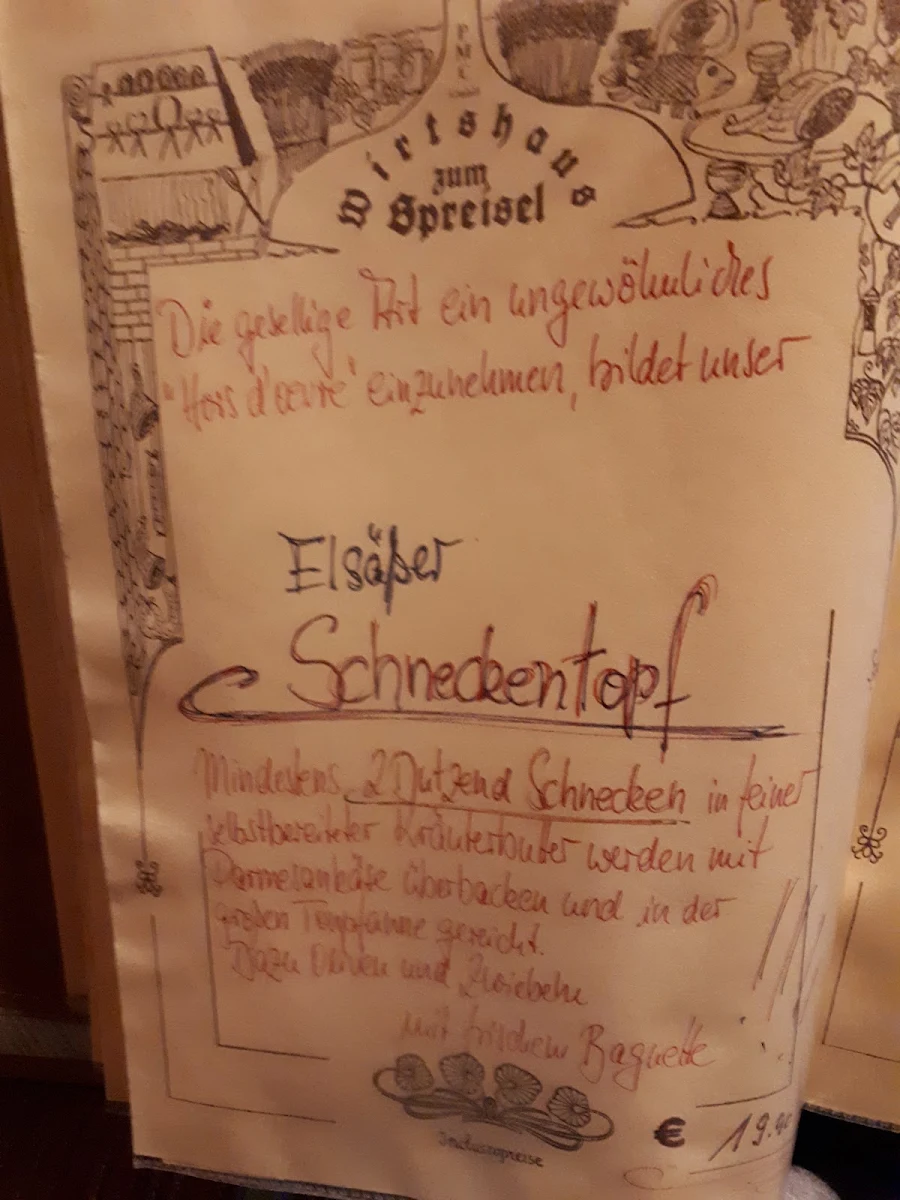 PMC
Wirtshaus
zum
Spreisel
Die gesellige Art ein ungewöhnliches
"Hors d'oevre" einzunehmen, bildet unser
Elsäßer
Schneckentopf
Mindestens 2 Dutzend Schnecken in feiner
selbstbereiteter Kräuterbutter werden mit
Parmesankäse überbacken und in der
großen Tonpfanne gereicht.
Dazu Oliven und Zwiebeln
mit frischem Baguette
Inclusivpreise
€ 19.